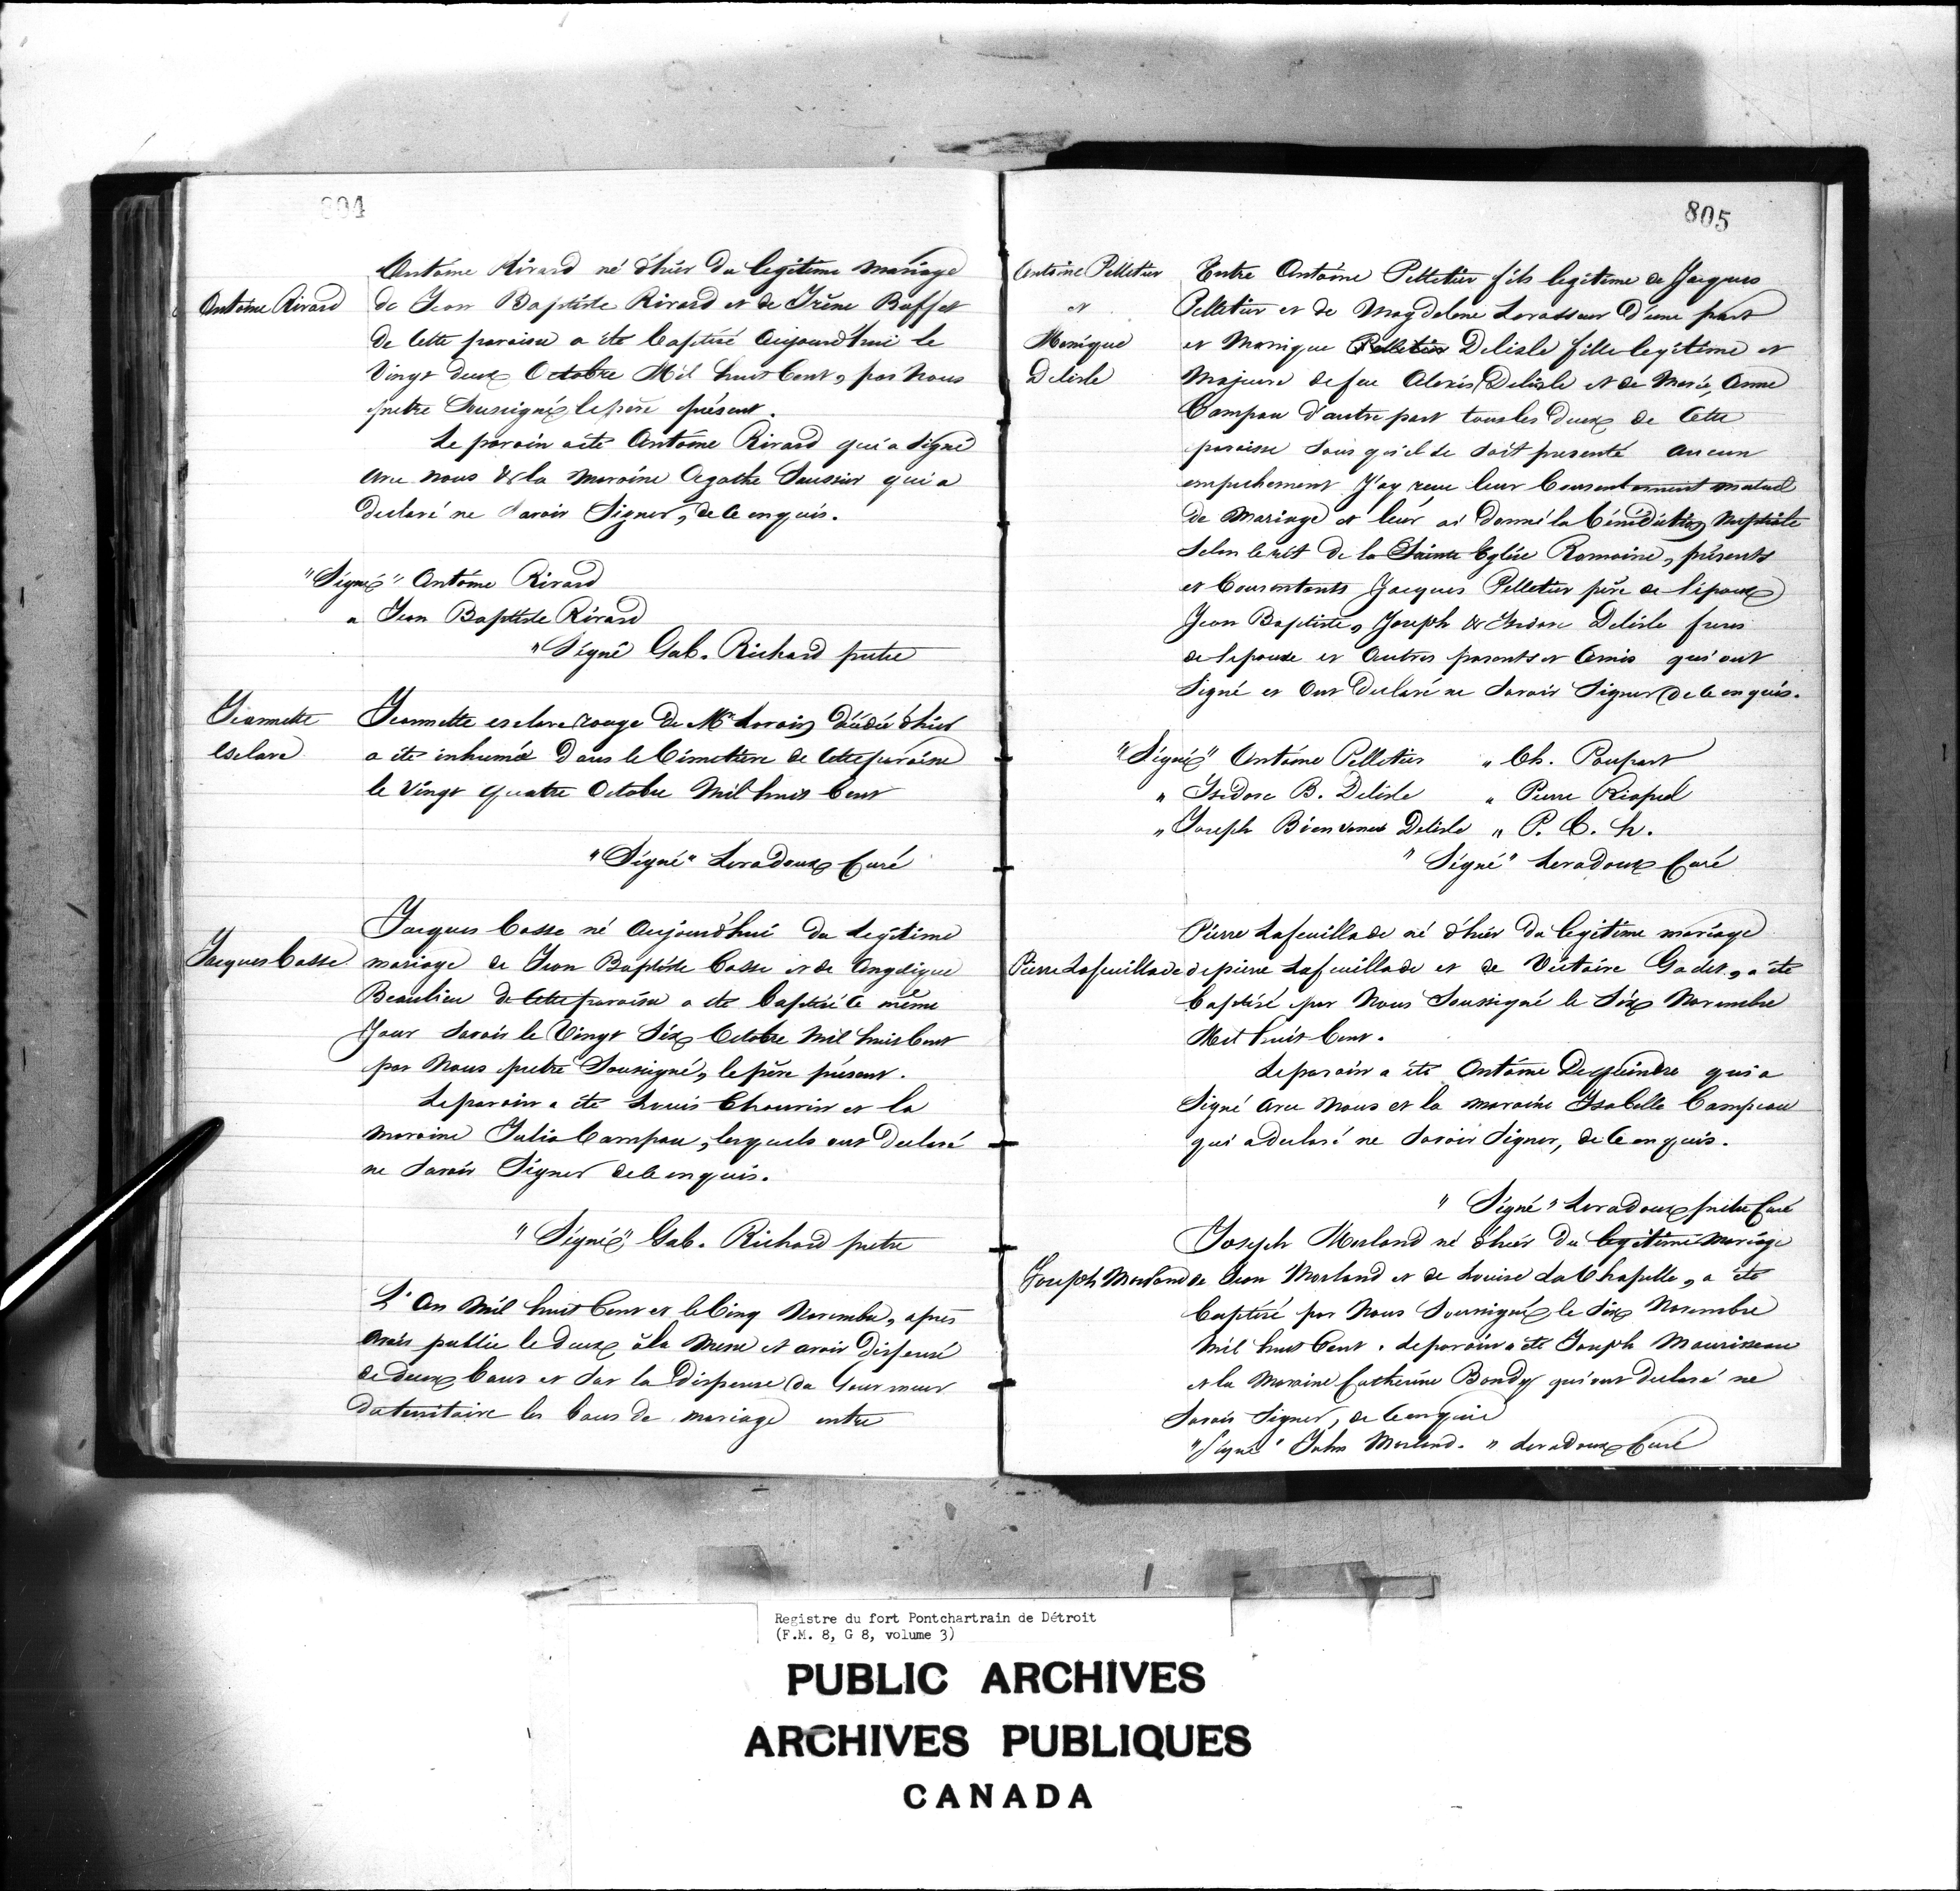 804
Antoine Rivard né d'hier du legitime mariage
Antoine Rivard
de Jean Baptiste Rivard et de Irène Buffet
de Cette paroisse a été baptisé Aujourd'hui le
Vingt deux Octobre Mil huit Cent, par Nous
pretre Soussigné le père présent.
Le parain a été Antoine Rivard qui a Signé
avec nous & la maraine Agathe Saussier qui a
declaré ne Savoir Signer, de ce enquis.
"Signé" Antoine Rivard
" Jean Baptiste Rivard
"Signé Gab. Richard pretre
Jeannette
esclave
Jeannette esclave rouge de Mr Voroix décédé d'hier
a été inhumé Dans le Cimetiere de Cette paroisse
le Vingt quatre Octobre Mil huit Cent
"Signé" Levadoux Curé
Jacques Casse né Aujourd'hui du Legitime
Jacques Casse
mariage de Jean Baptiste Casse et de Angelique
Beaulieu de Cette paroisse a été baptisé le même
Jour Savoir le Vingt Six Octobre Mil huit Cent
par Nous pretre Soussigné, le père présent.
Le parain a été Louis Chauvin et la
maraine Julie Campau, lesquels ont Declaré
ne Savoir Signer de ce enquis.
"Signé" Gab. Richard pretre
L'An Mil huit Cent et le Cinq Novembre, apres
avoir publie le deux à la Messe et avoir dispensé
de deux bans et Sur la Dispense du Gouverneur
du territoire les bans de mariage entre
805
Antoine Pelletier
et
Monique
Delisle
Entre Antoine Pelletier fils legitime de Jacques
Pelletier et de Magdelene Levasseur D'une part
et Monique Pelletier Delisle fille legitime et
Majeure de feu Alexis Delisle et de Marie Anne
Campau d'autre part tous les Deux de Cette
paroisse Sans qu'il se Soit presenté aucun
empechement J'ay recu leur Consentement mutuel
de Mariage et leur ai donné la bénédiction Nuptiale
Selon le rit de la Sainte Eglise Romaine, présents
et Consentants Jacques Pelletier père de l'époux
Jean Baptiste, Joseph & Isidore Delisle freres
de lepouse et Autres parents et Amis qui ont
Signé et Ont Declaré ne Savoir Signer de ce enquis.
"Signé" Antoine Pelletier " Ch. Poupart
" Isidore B. Delisle " Pierre Riopel
" Joseph Bienvenu Delisle " P. C. h.
" Signé" Levadoux Curé
Pierre Lafeuillade né d'hier du legitime mariage
Pierre Lafeuillade
de pierre Lafeuillade et de Victoire Godet, a été
baptisé par Nous Soussigné le Six Novembre
Mil huit Cent.
Le parain a été Antoine Dequindre qui a
Signé avec Nous et la maraine Isabelle Campeau
qui a declaré ne Savoir Signer, de ce enquis.
" Signé" Levadoux pretre Curé
Joseph Morland né d'hier du legitime mariage
Joseph Morland
de Jean Morland et de Louise La Chapelle, a été
baptisé par Nous Soussigné le Six Novembre
Mil huit Cent. le parain a été Joseph Mourisseau
et la Maraine Catherine Bondy qui ont declaré ne
Savoir Signer, de ce enquis
"Signé" John Morland. " Levadoux Curé
Registre du fort Pontchartrain de Détroit
(F.M. 8, G 8, volume 3)
PUBLIC ARCHIVES
ARCHIVES PUBLIQUES
CANADA